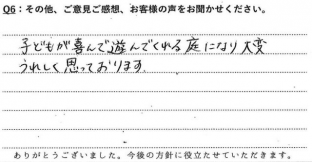 Q6：その他、ご意見ご感想、お客様の声をお聞かせください。
子どもが喜んで遊んでくれる庭になり大変
うれしく思っております。
ありがとうございました。今後の方針に役立たせていただきます。